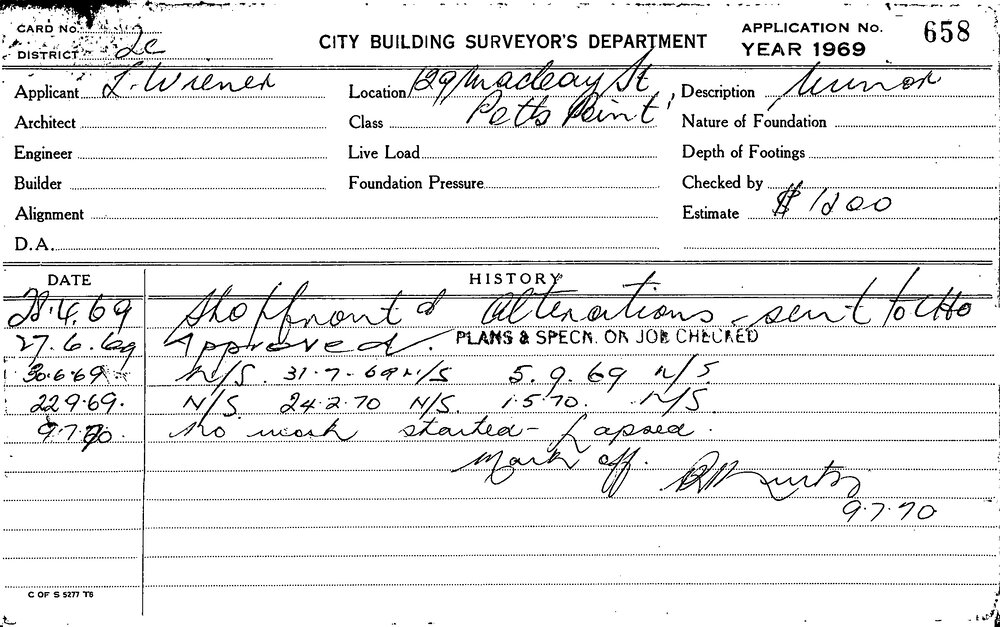 CARD No.
DISTRICT 2c
CITY BUILDING SURVEYOR'S DEPARTMENT
APPLICATION No. 658
YEAR 1969
Applicant L. Wiener
Location 129 Macleay St
Potts Point
Description Minor
Architect
Class
Nature of Foundation
Engineer
Live Load
Depth of Footings
Builder
Foundation Pressure
Checked by
Alignment
Estimate $ 1200
D.A.
DATE
HISTORY
28.4.69 Shopfront & alterations - sent to CHO
27.6.69 Approved. PLANS & SPECN. ON JOB CHECKED
30.6.69 N/S. 31.7.69 N/S 5.9.69 N/S
22.9.69. N/S. 24.2.70 N/S. 1.5.70. N/S.
9.7.70. No work started - Lapsed.
Mark off.
9.7.70
C OF S 5277 T6